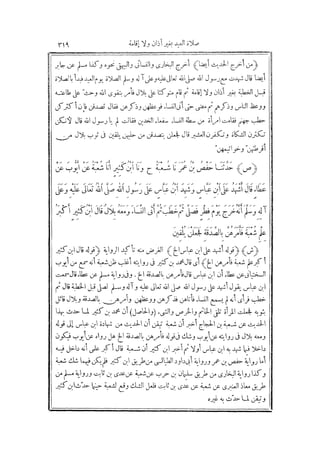 صلاة العيد بغير أذان ولا إقامة ٣١٩
﴿من أخرج الحديث أيضا﴾ أخرج البخارى والنسائى والبيهقى نحوه وكذا مسلم عن جابر
أيضا قال شهدت مع رسول الله صلى الله تعالى عليه وعلى آله وسلم الصلاة يوم العيد فبدأ بالصلاة
قبل الخطبة بغير أذان ولا إقامة ثم قام متوكئا على بلال فأمر بتقوى الله وحث على طاعته
ووعظ الناس وذكرهم ثم مضى حتى أتى النساء فوعظهن وذكرهن فقال تصدقن فإن أكثركن
حطب جهنم فقامت امرأة من سطة النساء سفعاء الخدين فقالت لم يا رسول الله قال لأنكن
تكثرن الشكاة وتكفرن العشير قال فجعلن يتصدقن من حليهن يلقين فى ثوب بلال من
أقرطتهن وخواتيمهن
﴿ص﴾ حَدَّثَنَا حَفْصُ بْنُ عُمَرَ نَا شُعْبَةُ ح وَنَا ابْنُ كَثِيرٍ أَنَا شُعْبَةُ عَنْ أَيُّوبَ عَنْ
عَطَاءٍ قَالَ أَشْهَدُ عَلَى ابْنِ عَبَّاسٍ وَشَهِدَ ابْنُ عَبَّاسٍ عَلَى رَسُولِ اللهِ صَلَّى اللهُ تَعَالَى عَلَيْهِ وَعَلَى
آلِهِ وَسَلَّمَ أَنَّهُ خَرَجَ يَوْمَ فِطْرٍ فَصَلَّى ثُمَّ خَطَبَ ثُمَّ أَتَى النِّسَاءَ وَمَعَهُ بِلَالٌ قَالَ ابْنُ كَثِيرٍ أَكْبَرُ
عِلْمِ شُعْبَةَ فَأَمَرَهُنَّ بِالصَّدَقَةِ فَجَعَلْنَ يُلْقِينَ
﴿ش﴾ ﴿قوله أشهد على ابن عباس الخ﴾ الغرض منه تأكيد الرواية ﴿قوله قال ابن كثير
أكبر علم شعبة فأمرهن الخ﴾ أى قال محمد بن كثير فى روايته أغلب ظن شعبة أنه سمع من أيوب
السختيانى عن عطاء أن ابن عباس قال فأمرهن بالصدقة الخ. وفى رواية مسلم عن عطاء قال سمعت
ابن عباس يقول أشهد على رسول الله صلى الله تعالى عليه وآله وسلم لصلى قبل الخطبة قال ثم
خطب فرأى أنه لم يسمع النساء فأتاهن فذكرهن ووعظهن وأمرهن بالصدقة وبلال قائل
بثوبه فجعلت المرأة تلقى الخاتم والخرص والشىء ﴿والحاصل﴾ أن محمد بن كثير لما حدث بهذا
الحديث عن شعبة بن الحجاج أخبر أن شعبة تيقن أن الحديث من شهادة ابن عباس إلى قوله
ومعه بلال فى روايته عن أيوب وشك فى قوله فأمرهن بالصدقة الخ هل رواه عن أيوب فيكون
داخلا فيما شهد به ابن عباس أولا ثم أخبر ابن كثير أن شعبة قال أكبر علمى أنه داخل فيه
أما رواية حفص بن عمر ورواية أبى داود الطيالسى من طريق ابن كثير فلم يكن فيهما شك شعبة
وكذا رواية البخارى من طريق سليمان بن حرب عن شعبة عن عدى بن ثابت ورواية مسلم من
طريق معاذ العنبرى عن شعبة عن عدى بن ثابت فلعل الشك وقع لشعبة حينما حدث ابن كثير
وتيقن لما حدث به غيره